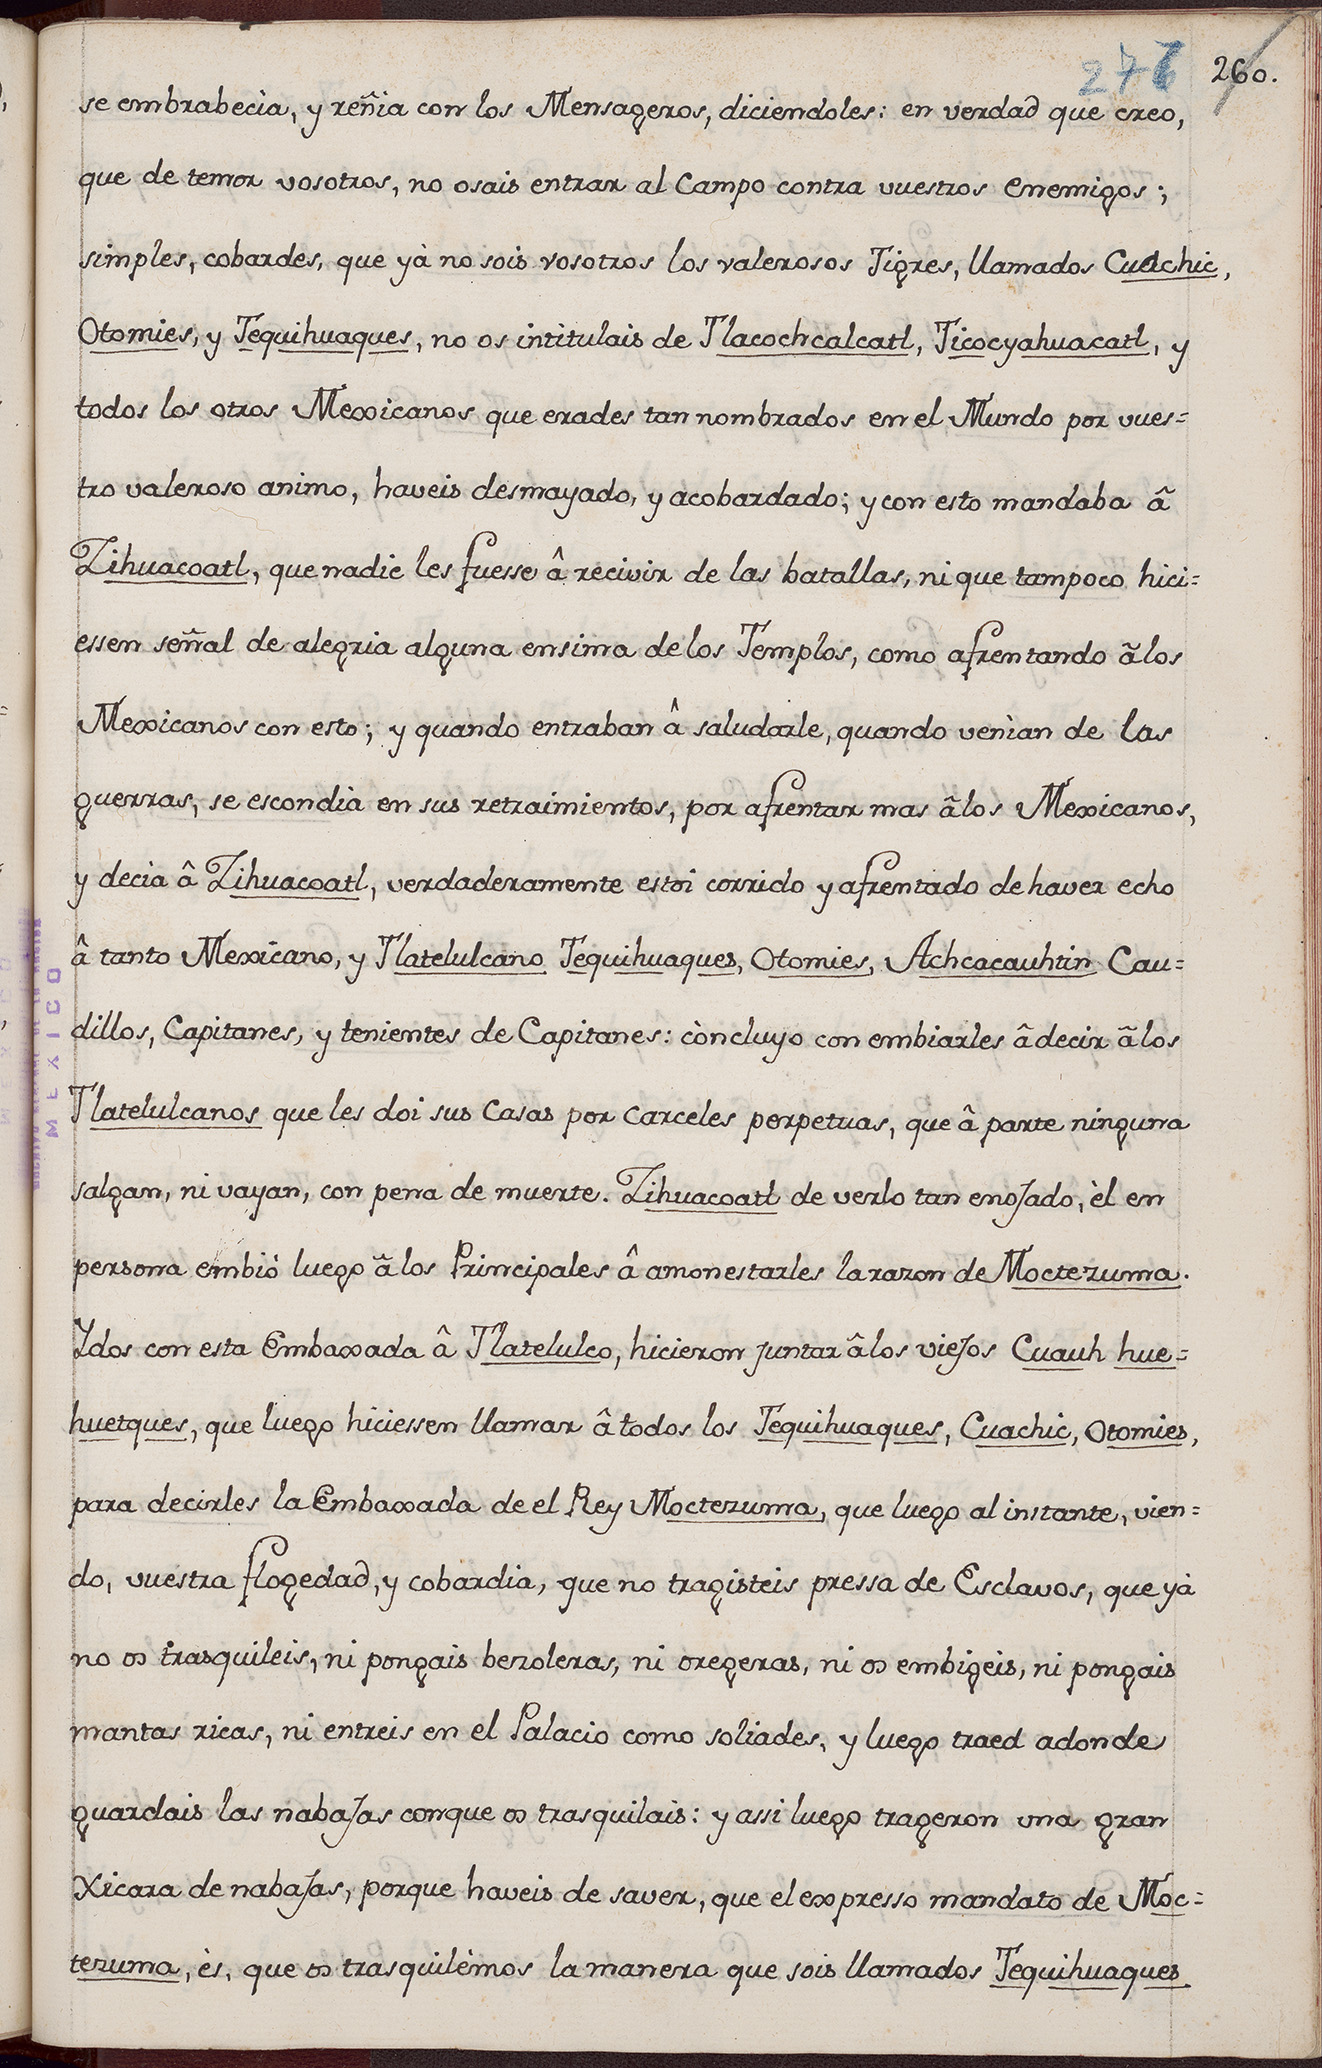 276 260.
se embrabecìa, y reñia con los Mensageros, diciendoles: en verdad que creo,
que de temor vosotros, no osais entrar al Campo contra vuestros enemigos;
simples, cobardes, que yà no sois vosotros los valerosos Tigres, llamados Cuachic,
Otomies, y Tequihuaques, no os intitulais de Tlacochcalcatl, Ticocyahuacatl, y
todos los otros Mexicanos que erades tan nombrados en el Mundo por vues=
tro valeroso animo, haveis desmayado, y acobardado; y con esto mandaba â
Zihuacoatl, que nadie les fuesse â recivir de las batallas, ni que tampoco hici=
essen señal de alegria alguna ensima de los Templos, como afrentando â los
Mexicanos con esto; y quando entraban â saludarle, quando venìan de las
guerras, se escondìa en sus retraimientos, por afrentar mas â los Mexicanos,
y decìa â Zihuacoatl, verdaderamente estoi corrido y afrentado de haver echo
â tanto Mexicano, y Tlatelulcano Tequihuaques, Otomies, Achcacauhtin Cau=
dillos, Capitanes, y tenientes de Capitanes: còncluyo con embiarles â decir â los
Tlatelulcanos que les doi sus Casas por Carceles perpetuas, que â parte ninguna
salgan, ni vayan, con pena de muerte. Zihuacoatl de verlo tan enojado, èl en
persona embiò luego â los Principales â amonestarles la razon de Moctezuma.
Idos con esta Embaxada â Tlatelulco, hicieron juntar â los viejos Cuauh hue=
huetques, que luego hiciessen llamar â todos los Tequihuaques, Cuachic, Otomies,
para decirles la Embaxada de el Rey Moctezuma, que luego al instante, vien=
do, vuestra flogedad, y cobardia, que no tragisteis pressa de Esclavos, que yà
no os trasquileis, ni pongais bezoleras, ni oregeras, ni os embigeis, ni pongais
mantas ricas, ni entreis en el Palacio como soliades, y luego traed adonde
guardais las nabajas conque os trasquilais: y assi luego trageron una gran
Xicara de nabajas, porque haveis de saver, que el expresso mandato de Moc=
tezuma, ès, que os trasquilèmos la manera que sois llamados Tequihuaques
MEXICO